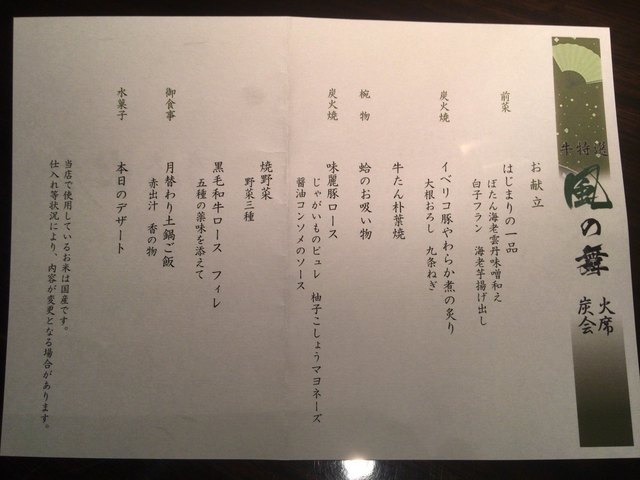 牛特選
風の舞
炭火
会席
お献立
前菜
はじまりの一品
ぼたん海老雲丹味噌和え
白子フラン 海老芋揚げ出し
炭火焼
イベリコ豚やわらか煮の炙り
大根おろし 九条ねぎ
牛たん朴葉焼
椀物
蛤のお吸い物
炭火焼
味麗豚ロース
じゃがいものピュレ 柚子こしょうマヨネーズ
醤油コンソメのソース
焼野菜
野菜三種
黒毛和牛ロース フィレ
五種の薬味を添えて
御食事
月替わり土鍋ご飯
赤出汁 香の物
水菓子
本日のデザート
当店で使用しているお米は国産です。
仕入れ等状況により、内容が変更となる場合があります。